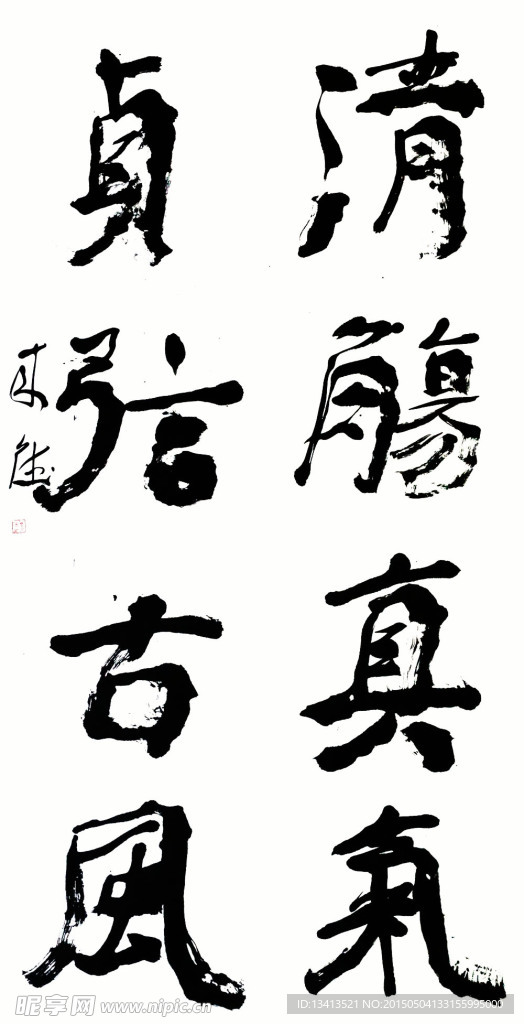 清觴真氣
貞弦古風
昵享网 www.nipic.cn
ID:13413521 NO:20150504133155995000